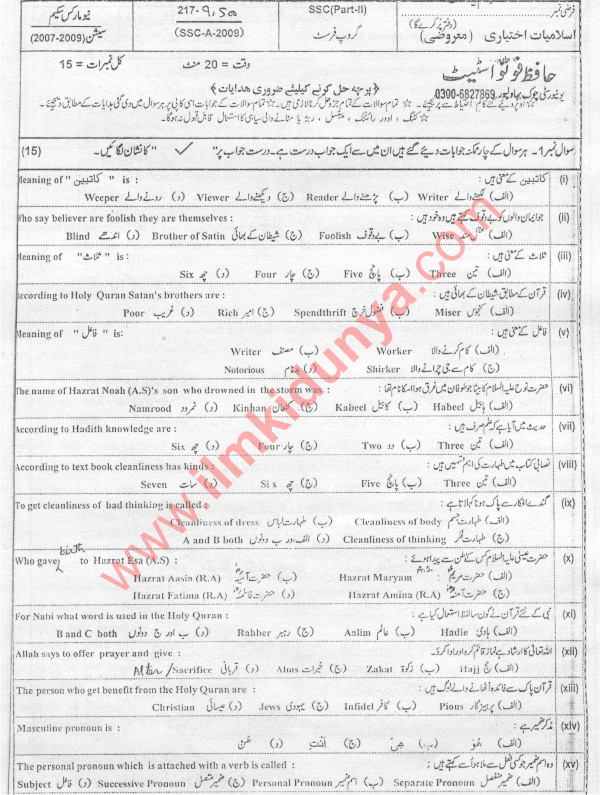 نیو مارکس سکیم
سیشن (2007-2009)
217-9,50
(SSC-A-2009)
SSC(Part-II)
گروپ فرسٹ
فرضی نمبر
اسلامیات اختیاری (معروضی)
کل نمبرات = 15
وقت = 20 منٹ
حافظ فوٹو اسٹیٹ
یونیورسٹی چوک بہاولپور 0300-6827869
پرچہ حل کرنے کیلئے ضروری ھدایات
سوال نمبر 1۔ ہر سوال کے چار ممکنہ جوابات دیئے گئے ہیں ان میں سے ایک جواب درست ہے۔ درست جواب پر " ✓ " کا نشان لگائیں۔ (15)
(i) کاتبین کے معنی ہیں: Meaning of "کاتبین" is :
(الف) لکھنے والے Writer (ب) پڑھنے والے Reader (ج) دیکھنے والے Viewer (د) رونے والے Weeper
(ii) جو ایمان والوں کو بے وقوف کہتے ہیں وہ خود ہیں: Who say believer are foolish they are themselves :
(الف) عقل مند Wise (ب) بے وقوف Foolish (ج) شیطان کے بھائی Brother of Satin (د) اندھے Blind
(iii) ثلاث کے معنی ہیں: Meaning of "ثلاث" is :
(الف) تین Three (ب) پانچ Five (ج) چار Four (د) چھ Six
(iv) قرآن کے مطابق شیطان کے بھائی ہیں: According to Holy Quran Satan's brothers are :
(الف) کنجوس Miser (ب) فضول خرچ Spendthrift (ج) امیر Rich (د) غریب Poor
(v) فاعل کے معنی ہیں: Meaning of "فاعل" is:
(الف) کام کرنے والا Worker (ب) مصنف Writer
(ج) کام سے جی چرانے والا Shirker (د) بدنام Notorious
(vi) حضرت نوح علیہ السلام کا بیٹا جو طوفان میں غرق ہوا اس کا نام تھا: The name of Hazrat Noah (A.S)'s son who drowned in the storm was :
(الف) ہابیل Habeel (ب) کابیل Kabeel (ج) کنعان Kinhan (د) نمرود Namrood
(vii) حدیث میں آیا ہے کہ علم صرف ہیں: According to Hadith knowledge are :
(الف) تین Three (ب) دو Two (ج) چار Four (د) چھ Six
(viii) نصابی کتاب میں طہارت کی اہم قسمیں ہیں: According to text book cleanliness has kinds :
(الف) تین Three (ب) پانچ Five (ج) چھ Six (د) سات Seven
(ix) گندے افکار سے پاک ہونا کہلاتا ہے: To get cleanliness of bad thinking is called :
(الف) طہارت جسم Cleanliness of body (ب) طہارت لباس Cleanliness of dress
(ج) طہارت فکر Cleanliness of thinking (د) الف اور ب دونوں A and B both
(x) حضرت عیسیٰ علیہ السلام کس کے بطن سے پیدا ہوئے: Who gave birth to Hazrat Esa (A.S) :
(الف) حضرت مریم Hazrat Maryam (ب) حضرت آسیہ Hazrat Aasia (R.A)
(ج) حضرت آمنہ Hazrat Amina (R.A) (د) حضرت فاطمہ Hazrat Fatima (R.A)
(xi) نبی کے لئے قرآن نے کون سا لفظ استعمال کیا ہے: For Nabi what word is used in the Holy Quran :
(الف) ہادی Hadie (ب) عالم Aalim (ج) رہبر Rahber (د) ب اور ج دونوں B and C both
(xii) اللہ تعالیٰ کا ارشاد ہے نماز قائم کرو اور ادا کرو: Allah says to offer prayer and give :
(الف) حج Hajj (ب) زکوٰۃ Zakat (ج) خیرات Alms (د) قربانی Alter/Sacrifice
(xiii) قرآن پاک سے فائدہ اٹھانے والے لوگ ہیں: The person who get benefit from the Holy Quran are :
(الف) پرہیز گار Pious (ب) کافر Infidel (ج) یہودی Jews (د) عیسائی Christian
(xiv) مذکر ضمیر ہے: Masculine pronoun is :
(الف) ھُوَ (ب) ھِیَ (ج) اَنْتِ (د) ھُنَّ
(xv) وہ اسم ضمیر جو کسی فعل سے ملا ہوا سے کہتے ہیں: The personal pronoun which is attached with a verb is called :
(الف) ضمیر منفصل Separate Pronoun (ب) اسم ضمیر Personal Pronoun (ج) ضمیر متصل Successive Pronoun (د) فاعل Subject
www.ilmkidunya.com